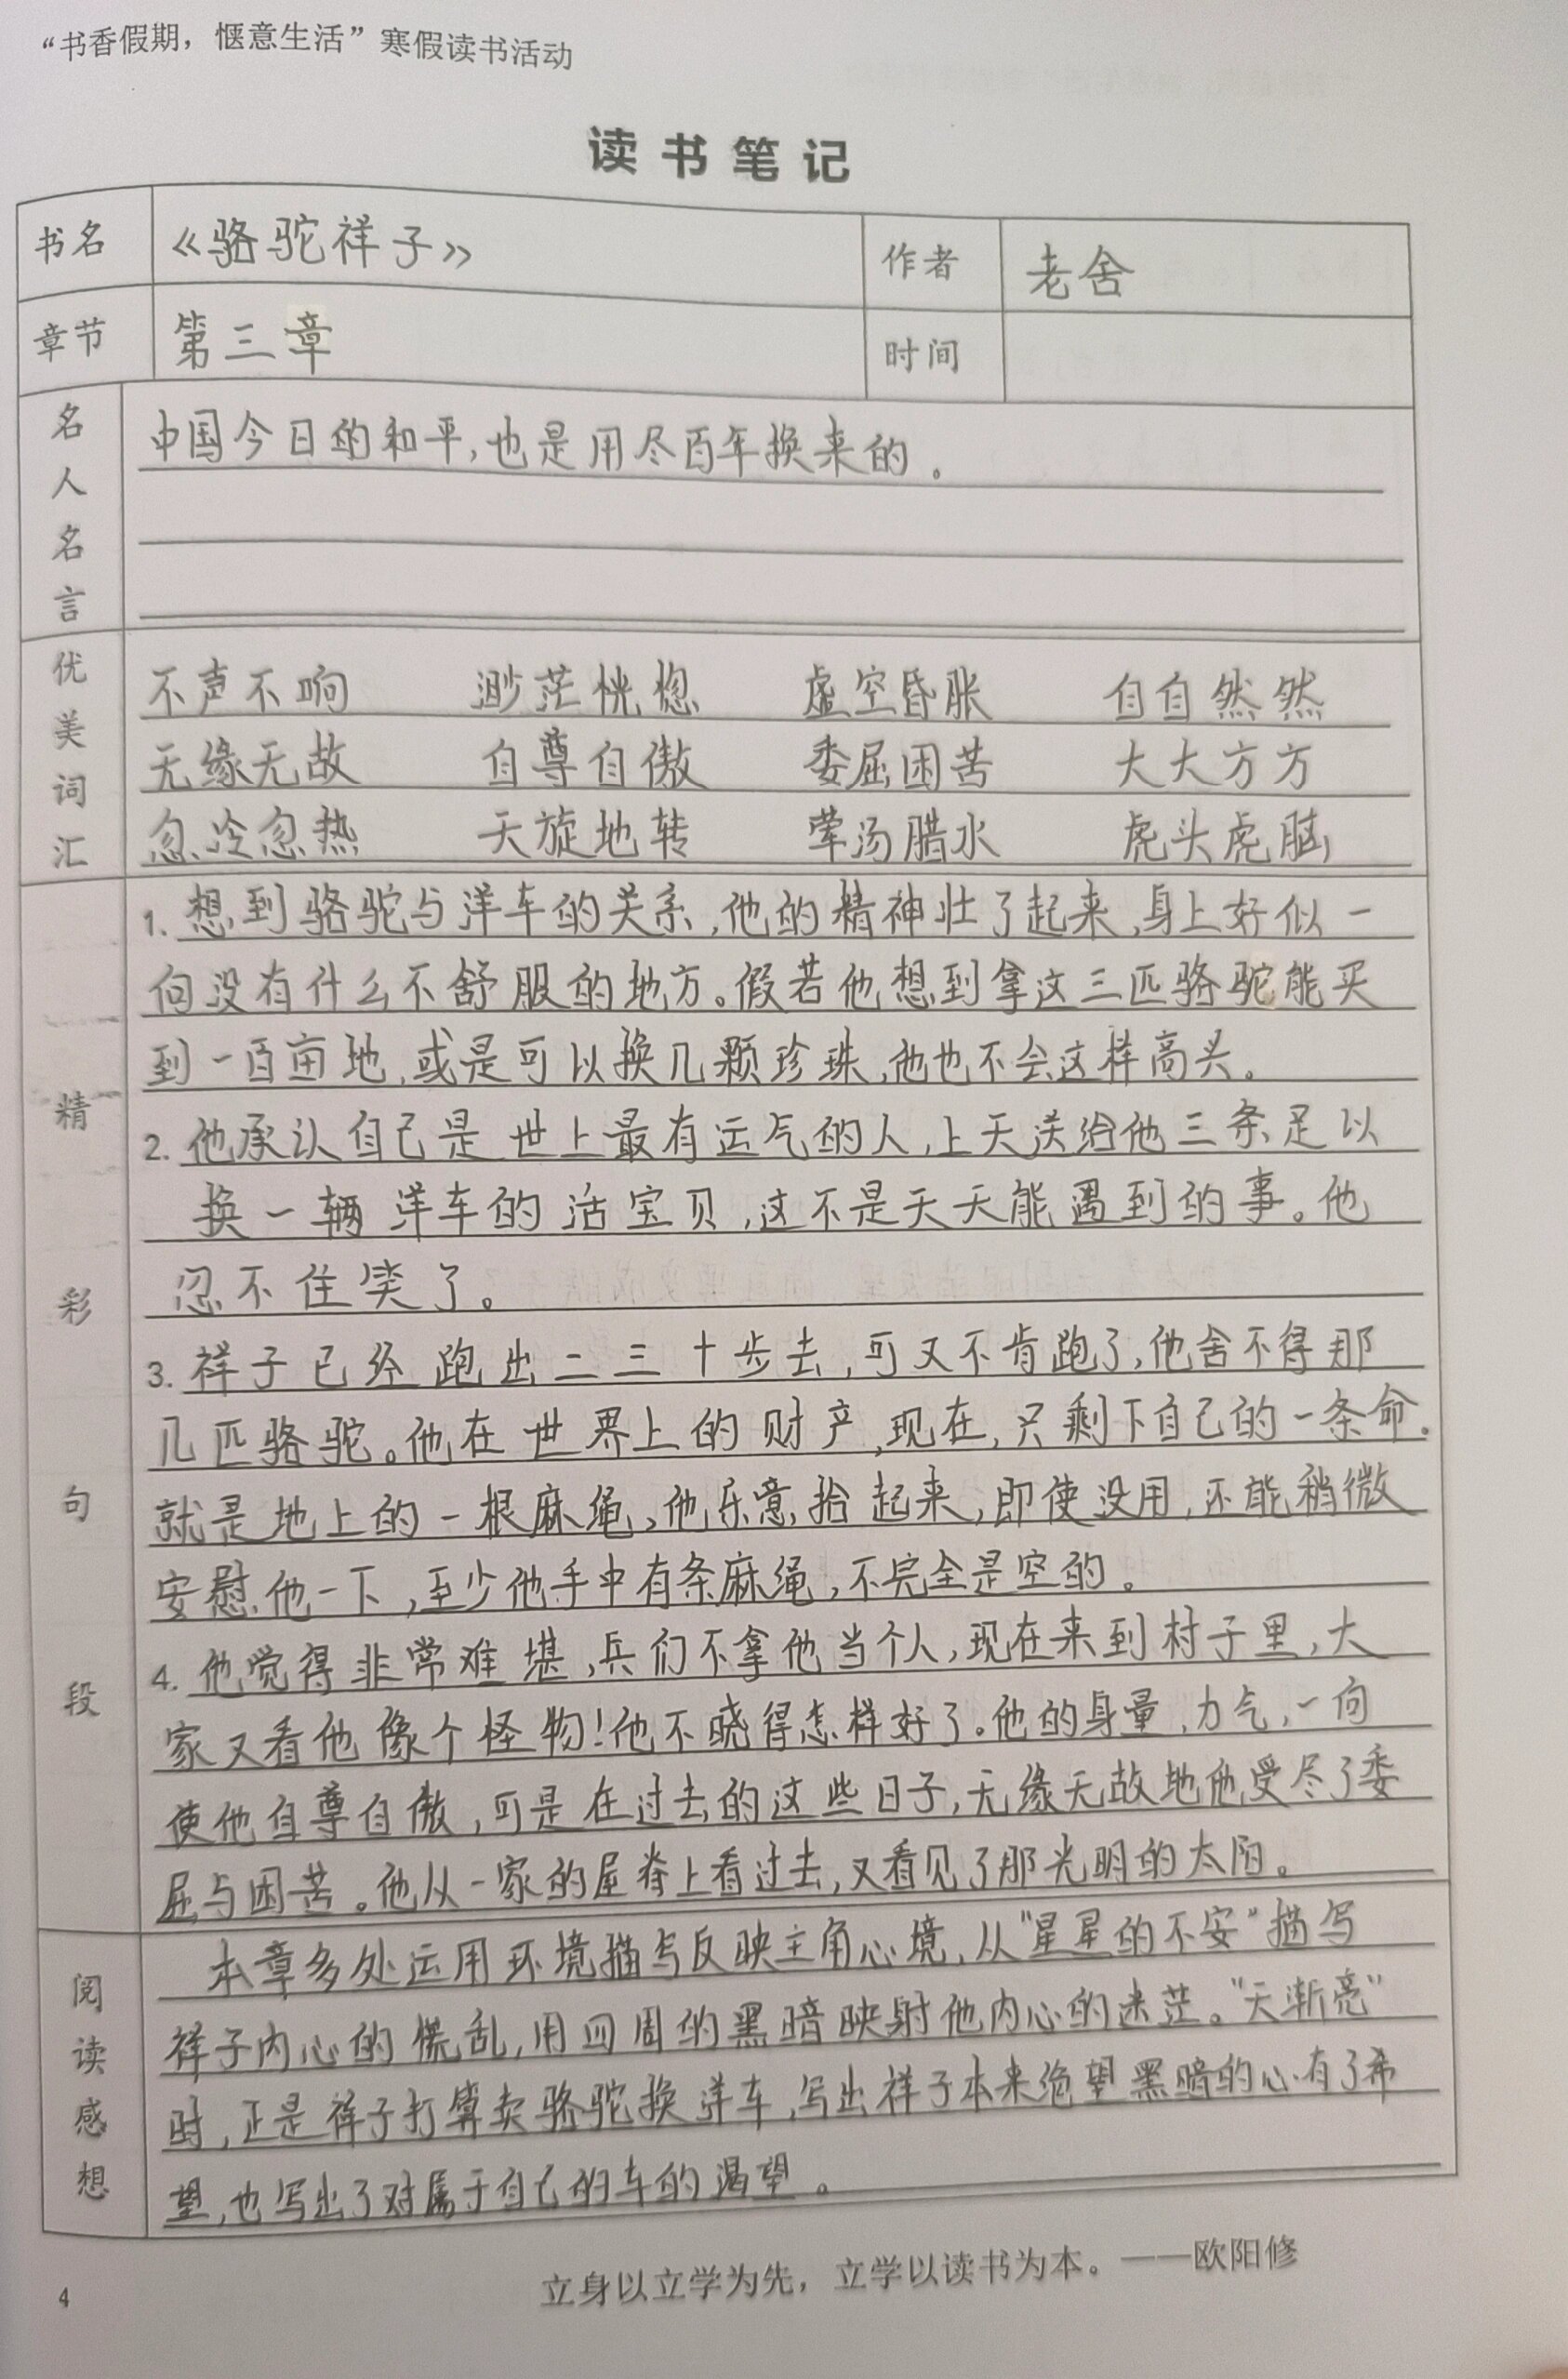 “书香假期，惬意生活”寒假读书活动
读书笔记
书名 《骆驼祥子》 作者 老舍
章节 第三章 时间
名人名言
中国今日的和平,也是用尽百年换来的。
优美词汇
不声不响 渺茫恍惚 虚空昏胀 自自然然
无缘无故 自尊自傲 委屈困苦 大大方方
忽冷忽热 天旋地转 荤汤腊水 虎头虎脑
精彩句段
1. 想到骆驼与洋车的关系,他的精神壮了起来,身上好似一
向没有什么不舒服的地方。假若他想到拿这三匹骆驼能买
到一百亩地,或是可以换几颗珍珠,他也不会这样高兴。
2. 他承认自己是世上最有运气的人,上天送给他三条足以
换一辆洋车的活宝贝,这不是天天能遇到的事。他
忍不住笑了。
3. 祥子已经跑出二三十步去,可又不肯跑了,他舍不得那
几匹骆驼。他在世界上的财产,现在,只剩下自己的一条命.
就是地上的一根麻绳,他乐意拾起来,即使没用,还能稍微
安慰他一下,至少他手中有条麻绳,不完全是空的。
4. 他觉得非常难堪,兵们不拿他当个人,现在来到村子里,大
家又看他像个怪物!他不晓得怎样好了。他的身量,力气,一向
使他自尊自傲,可是在过去的这些日子,无缘无故地他受尽了委
屈与困苦。他从一家的屋脊上看过去,又看见了那光明的太阳。
阅读感想
本章多处运用环境描写反映主角心境,从“星星的不安”描写
祥子内心的慌乱,用四周的黑暗映射他内心的迷茫。“天渐亮”
时,正是祥子打算卖骆驼换洋车,写出祥子本来绝望黑暗的心有了希
望,也写出了对属于自己的车的渴望。
立身以立学为先，立学以读书为本。——欧阳修
4